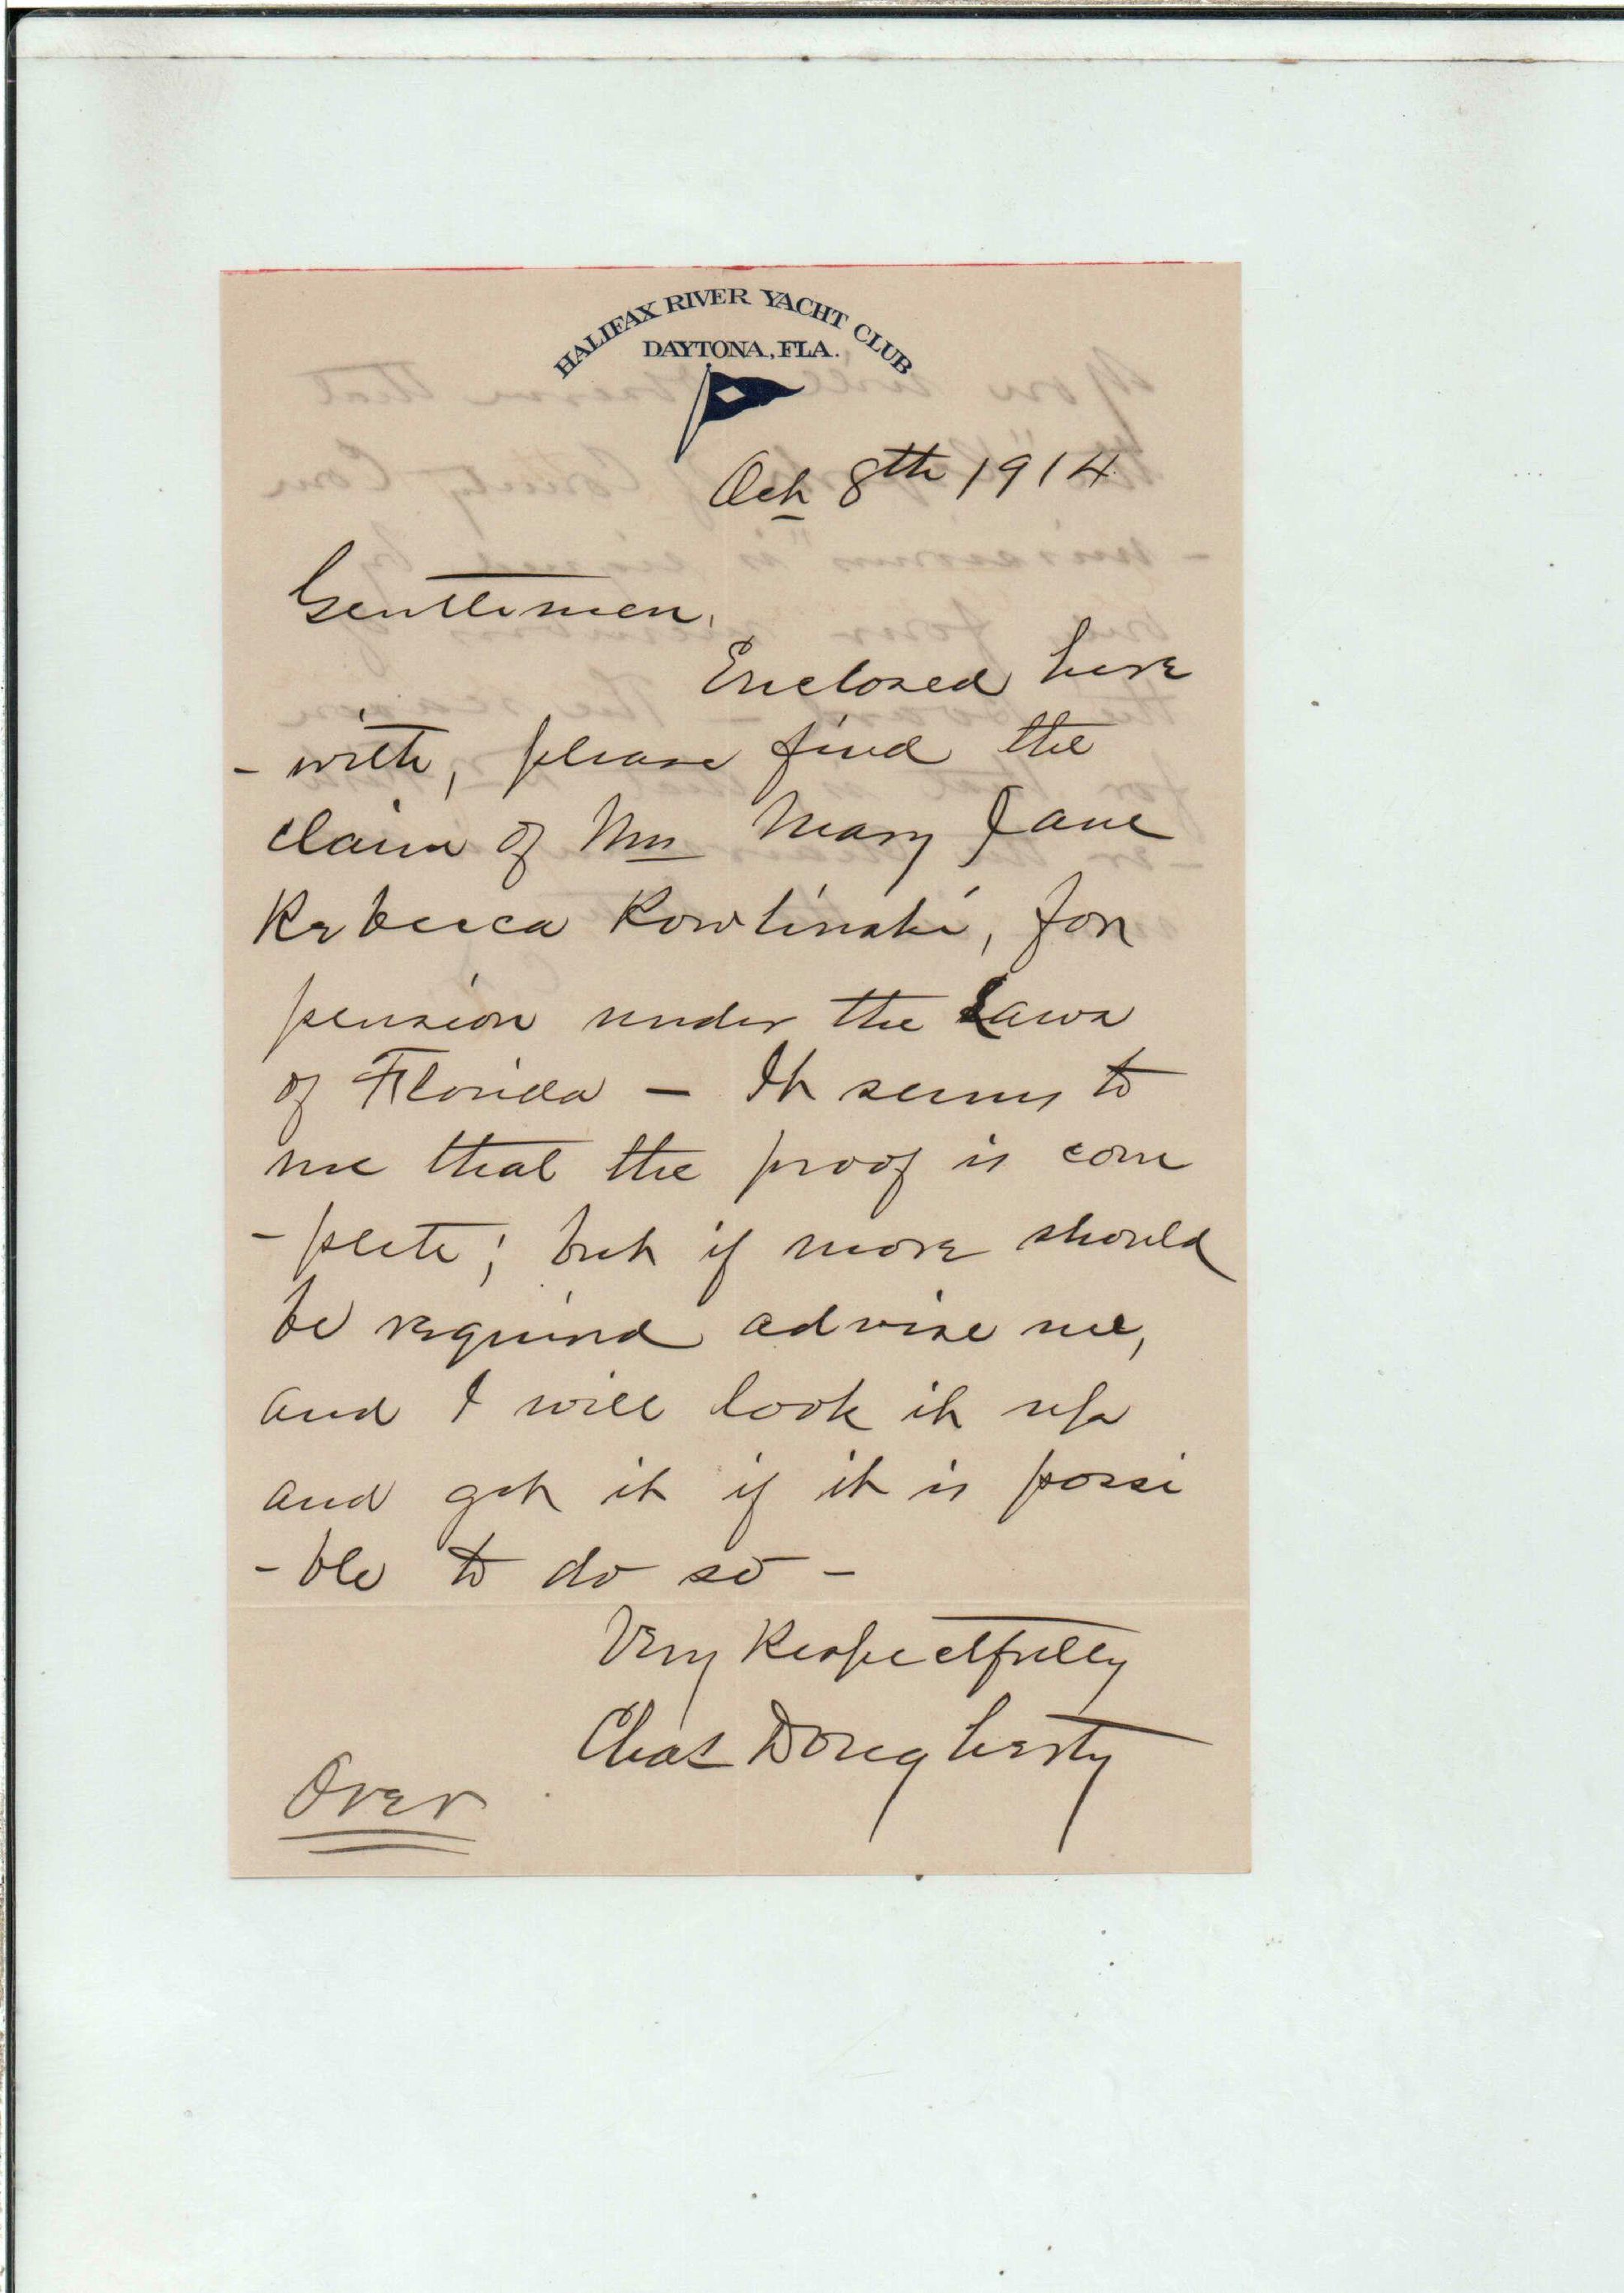 HALIFAX RIVER YACHT CLUB
DAYTONA, FLA.
Oct 8th 1914
Gentlemen,
Enclosed here
- with, please find the
claim of Mrs Mary Jane
Rebecca Rowlinski, for
pension under the Laws
of Florida — It seems to
me that the proof is com
- plete; but if more should
be required advise me,
and I will look it up
and get it if it is possi
- ble to do so —
Very Respectfully
Chas Dougherty
Over